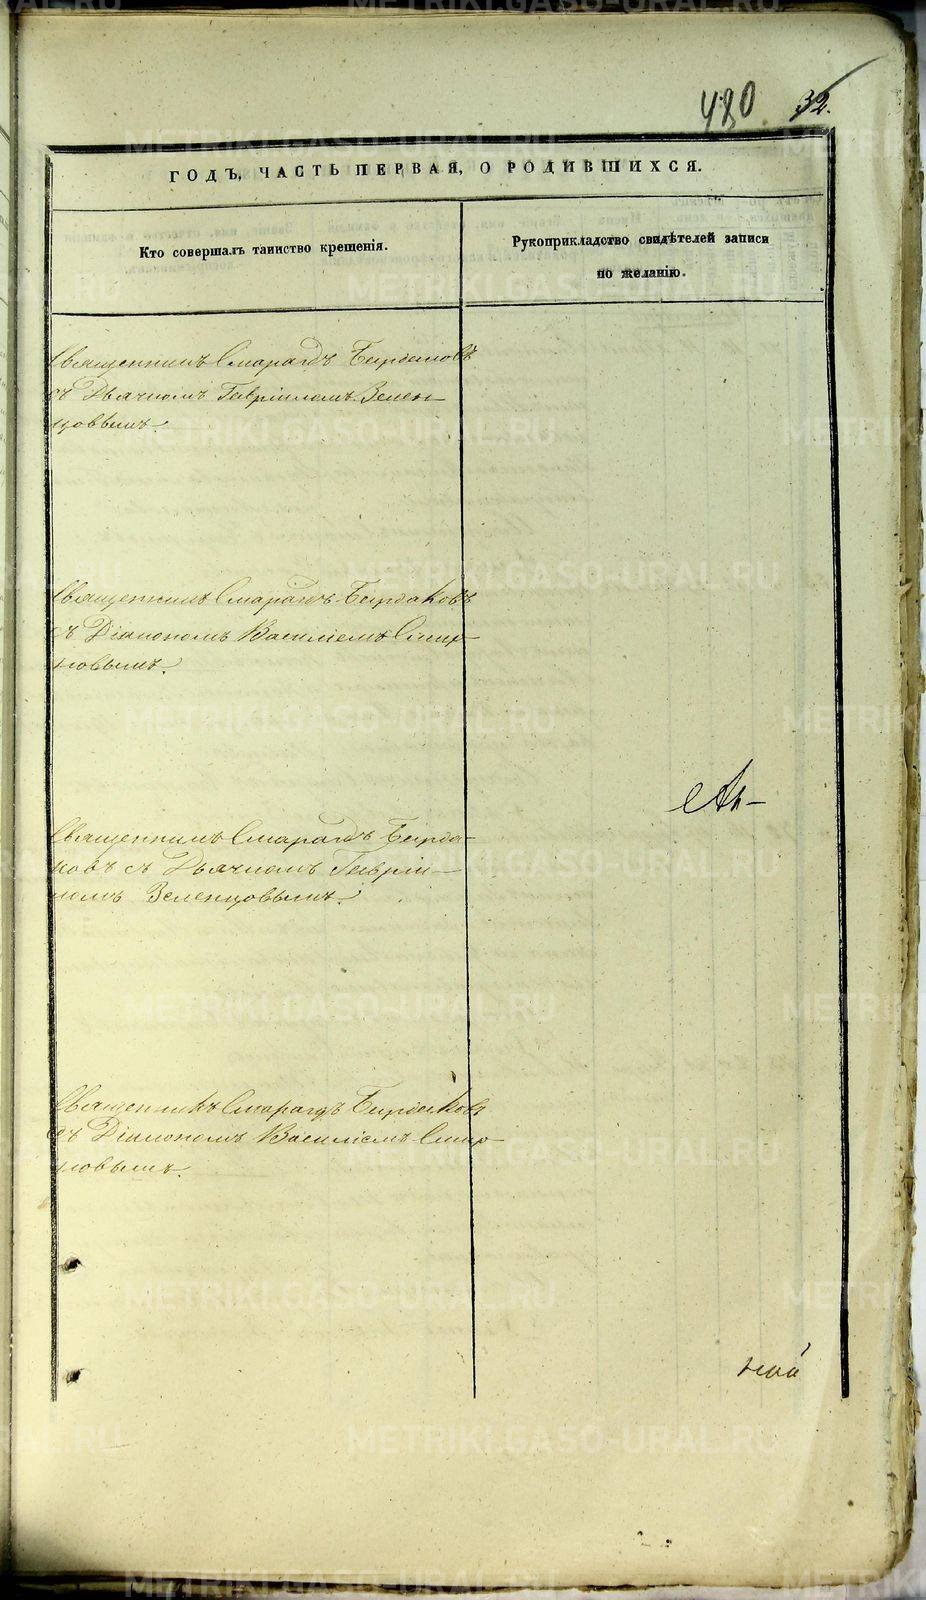 480 32.
ГОДЪ, ЧАСТЬ ПЕРВАЯ, О РОДИВШИХСЯ.
Кто совершалъ таинство крещенія.
Рукоприкладство свидѣтелей записи
по желанію.
Священникъ Смарагдъ Бирдаковъ
съ Дьячкомъ Гавріиломъ Зелен-
цовымъ.
Священникъ Смарагдъ Бирдаковъ
съ Діакономъ Василіемъ Смир-
новымъ.
Священникъ Смарагдъ Бирда-
ковъ съ Дьячкомъ Гавріи-
ломъ Зеленцовымъ.
Священникъ Смарагдъ Бирдаковъ
съ Діакономъ Василіемъ Смир-
новымъ.
METRIKI.GASO-URAL.RU